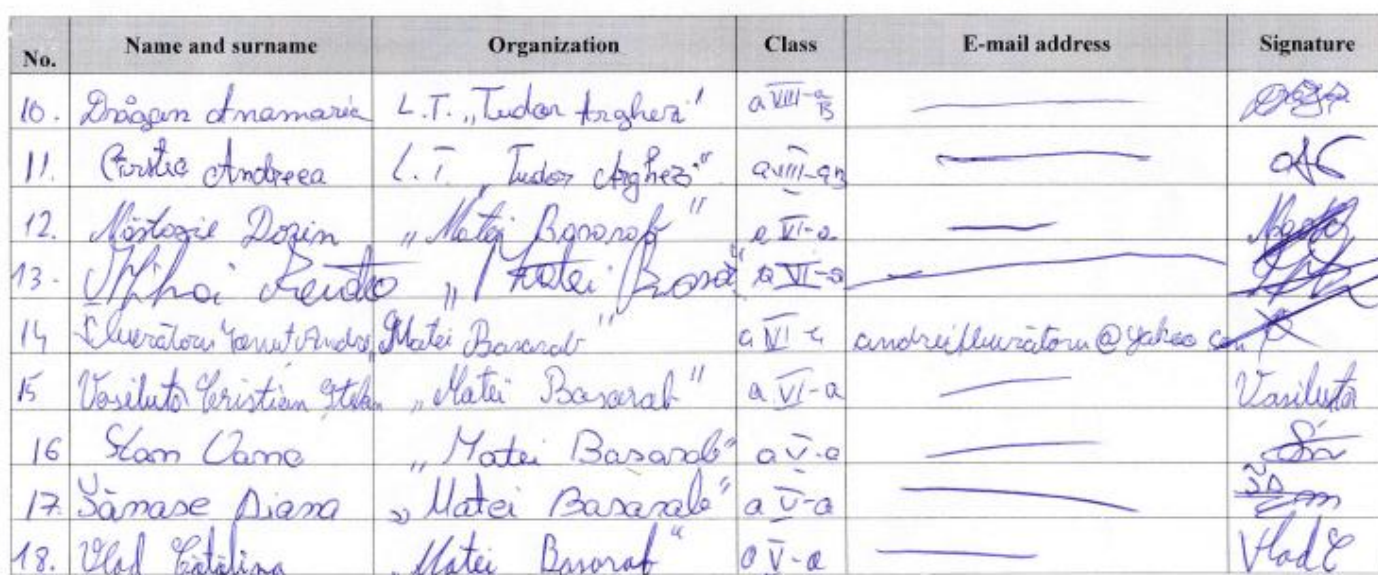 No. Name and surname Organization Class E-mail address Signature
10. Drăgan Anamaria L.T. „Tudor Arghezi" a VIII-a B
11. Cîrstea Andreea L.T. „Tudor Arghezi" a VIII-a B
12. Dorin „Matei Basarab" a VI-a
13. Mihai „Matei a VI-a
14 Ionuț Andrei Matei Basarab" a VI-a
15 Vasiluta Cristian Stefan „Matei Basarab" a VI-a Vasiluta
16 Stan Oana „Matei Basarab" a V-a
17. Tănase Diana „Matei Basarab" a V-a
18. Vlad Cătălina „Matei Basarab" a V-a Vlad C